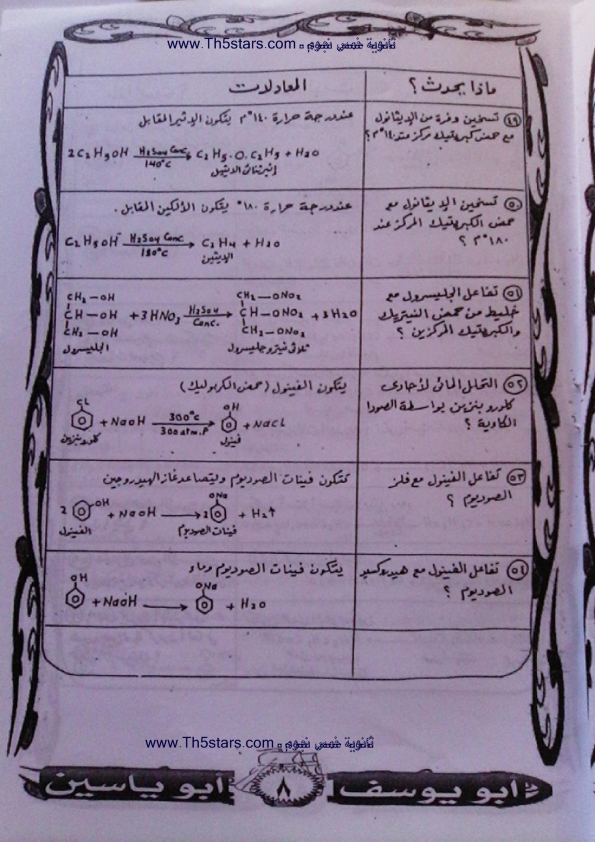 www.Th5stars.com ثانوية خمس نجوم
ماذا يحدث؟
المعادلات
٤٩ تسخين وفرة من الإيثانول
مع حمض كبريتيك مركز عند ١٤٠°م؟
عند درجة حرارة ١٤٠°م يتكون الإثير المقابل
2C2H5OH H2SO4 Conc. 140°C → C2H5.O.C2H5 + H2O
إثير ثنائي الايثيل
٥٠ تسخين الإيثانول مع
حمض الكبريتيك المركز عند
١٨٠°م ؟
عند درجة حرارة ١٨٠° يتكون الألكين المقابل .
C2H5OH H2SO4 Conc. 180°C → C2H4 + H2O
الإيثين
٥١ تفاعل الجليسرول مع
خليط من حمض النيتريك
والكبريتيك المركزين ؟
CH2 – OH CH2 – ONO2
CH – OH + 3HNO3 H2SO4 Conc. → CH – ONO2 + 3H2O
CH2 – OH CH2 – ONO2
الجليسرول ثلاثى نيترو جليسرول
٥٢ التحلل المائى لأحادى
كلورو بنزين بواسطة الصودا
الكاوية ؟
يتكون الفينول (حمض الكربوليك)
CL OH
+ NaOH 300°C 300 atm.P → + NaCL
كلوروبنزين فينول
٥٣ تفاعل الفينول مع فلز
الصوديوم ؟
تتكون فينات الصوديوم ويتصاعد غاز الهيدروجين
2 OH + NaOH → 2 ONa + H2↑
الفينول فينات الصوديوم
٥٤ تفاعل الفينول مع هيدروكسيد
الصوديوم ؟
يتكون فينات الصوديوم وماء
OH ONa
+ NaOH → + H2O
www.Th5stars.com ثانوية خمس نجوم
أبو يوسف ٨ أبو ياسين